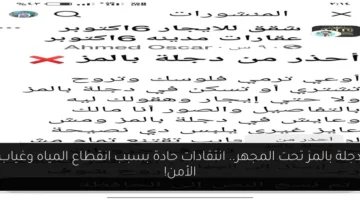 المنشورات
شقق للايجار 6اكتوبر
عقارات مدينه 6اكتوبر
Ahmed Oscar
أحذر من دجلة بالمز ❌
اوعي ترمي فلوسك وتروح
تشتري أو تسكن في دجلة بالمز
حتي إيجار وهقولك ليه
بالتفاصيل والصور أنا مالك
وعايش في دجلة بالمز ومش
عايز غيري يلبس دي نصيحة
دجلة بالمز تحت المجهر.. انتقادات حادة بسبب انقطاع المياه وغياب
الأمن!